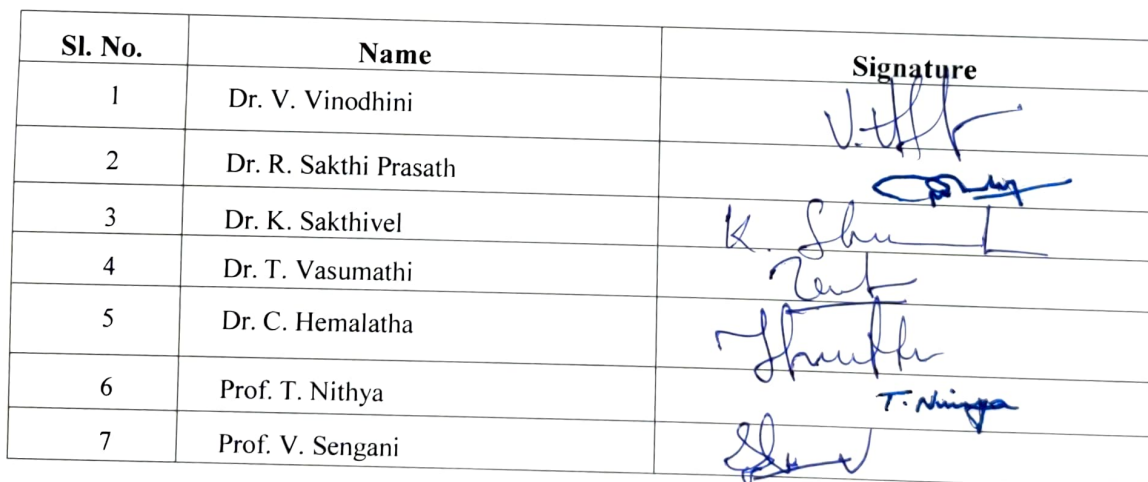 Sl. No. Name Signature
1 Dr. V. Vinodhini
2 Dr. R. Sakthi Prasath
3 Dr. K. Sakthivel K.
4 Dr. T. Vasumathi
5 Dr. C. Hemalatha
6 Prof. T. Nithya T.
7 Prof. V. Sengani